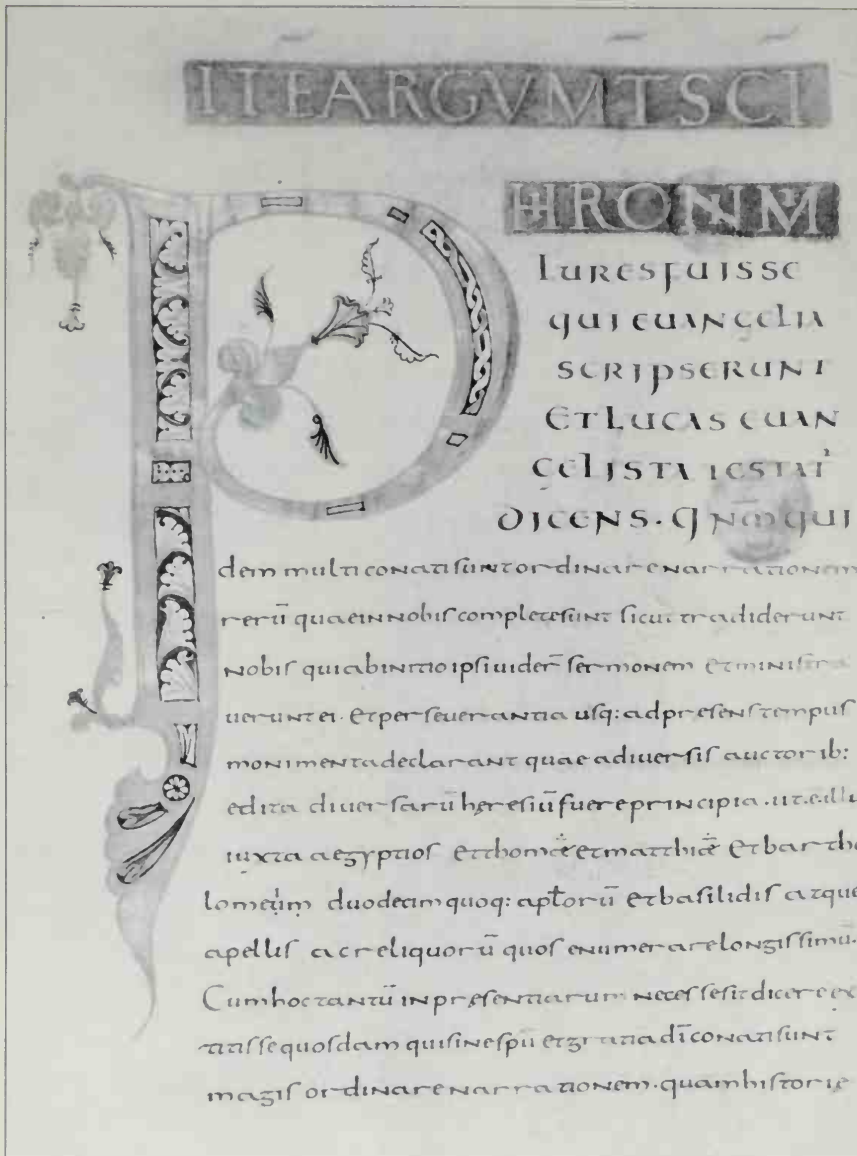 ITE ARGVMT SCI
HIRONIM
PLURES FUISSE
QUI EUANGELIA
SCRIPSERUNT
ET LUCAS EUAN
GELISTA TESTAT
DICENS. QNM QUI
dem multi conati sunt ordinare narrationem
rerū quae in nobis complete sunt sicut tradiderunt
nobis qui ab initio ipsi uider̄ sermonem et ministra
uerunt ei. Et perseuerantia usq: ad presens tempus
monimenta declarant quae a diuersis auctorib:
edita diuersarū heresiū fuere principia. ut. e. illu
iuxta aegyptios et thomæ et matthiæ et bartho
lomeum duodecim quoq: aptorū et basilidis atque
apellis ac reliquorū quos enumerare longissimū.
Cum hoc tantū in presentiarum necesse sit dicere ex
titisse quosdam qui sine spū et gratia dī conati sunt
magis ordinare narrationem. quam historie